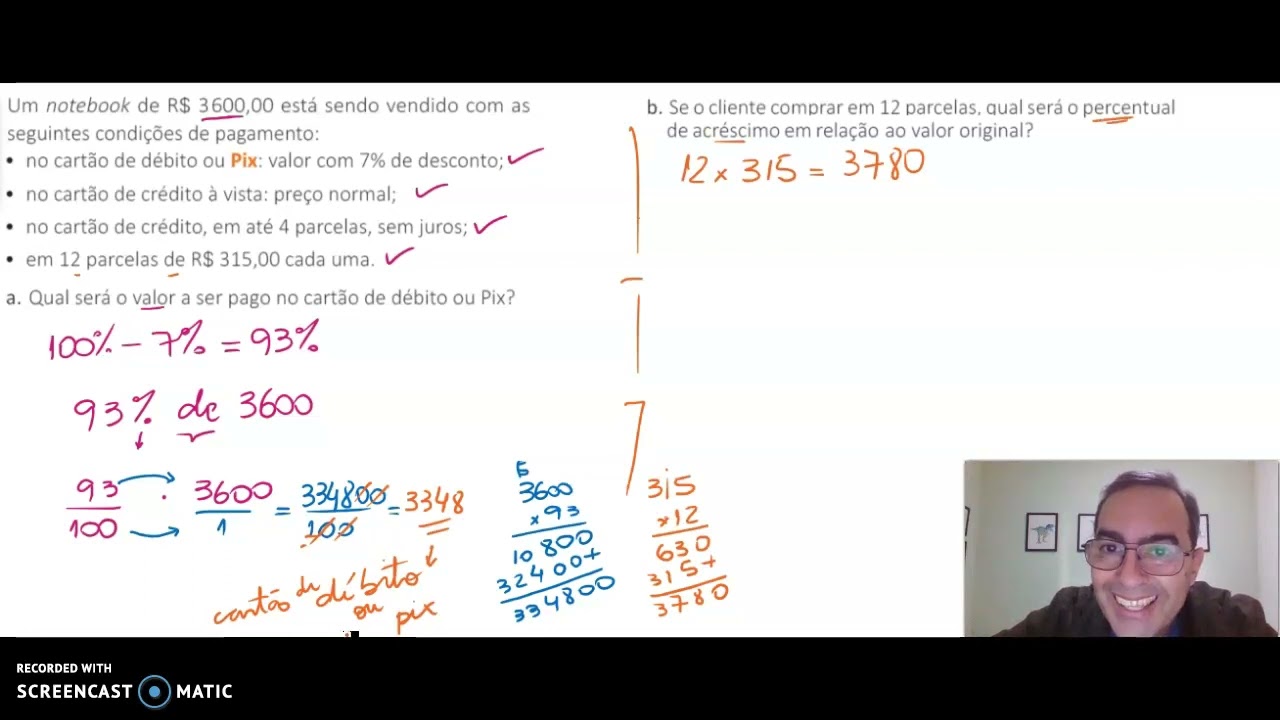 Um notebook de R$ 3 600,00 está sendo vendido com as
seguintes condições de pagamento:
• no cartão de débito ou Pix: valor com 7% de desconto;
• no cartão de crédito à vista: preço normal;
• no cartão de crédito, em até 4 parcelas, sem juros;
• em 12 parcelas de R$ 315,00 cada uma.
a. Qual será o valor a ser pago no cartão de débito ou Pix?
100% - 7% = 93%
93% de 3600
93 . 3600 = 334800 = 3348
100 1 100
cartão de débito
ou pix
5
3600
×93
10800
32400+
334800
b. Se o cliente comprar em 12 parcelas, qual será o percentual
de acréscimo em relação ao valor original?
12 × 315 = 3780
315
×12
630
315+
3780
RECORDED WITH
SCREENCAST MATIC